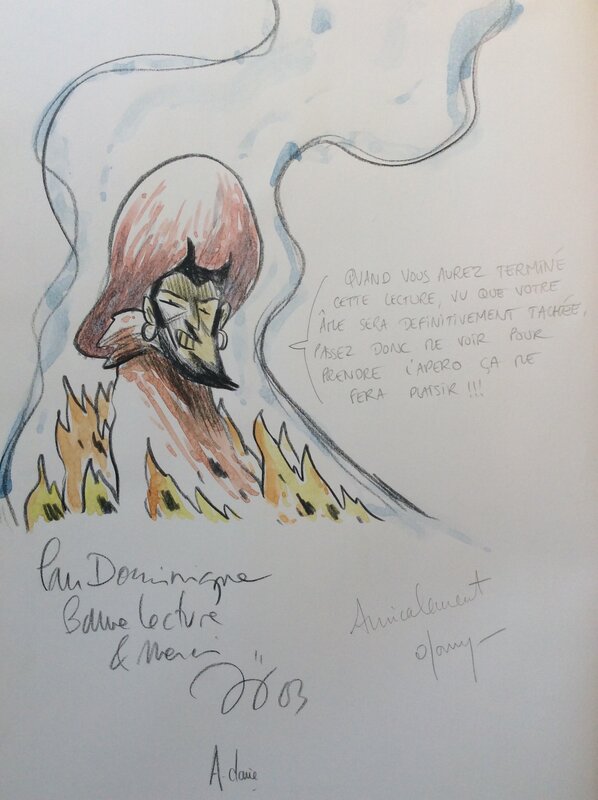 QUAND VOUS AUREZ TERMINÉ
CETTE LECTURE, VU QUE VOTRE
ÂME SERA DEFINITIVEMENT TACHÉE,
PASSEZ DONC ME VOIR POUR
PRENDRE L'APERO ÇA ME
FERA PLAISIR !!!
Pour Dominique
Bonne Lecture
& Merci
03
Amicalement